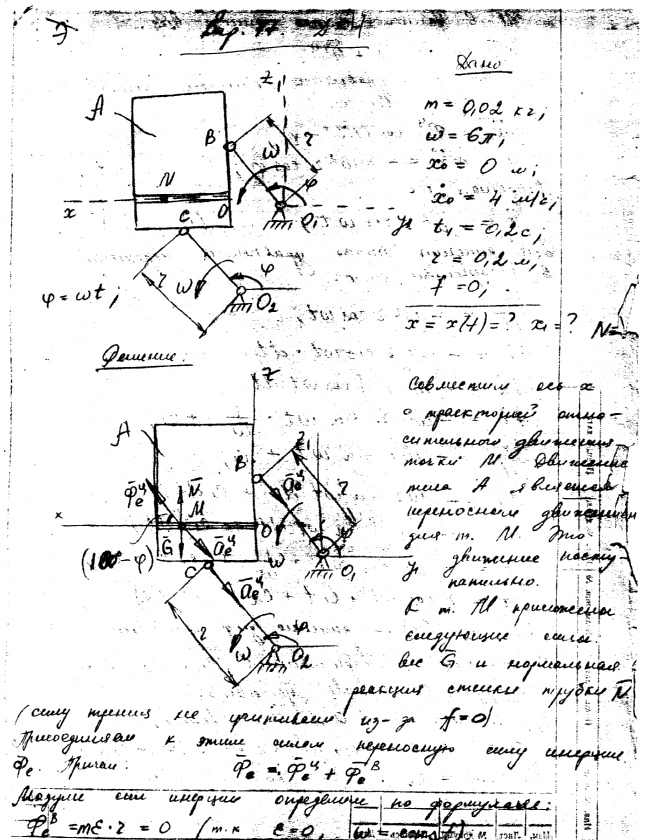 Вар. 17 Д-4
Дано
m = 0,02 кг;
ω = 6π;
x₀ = 0 м;
ẋ₀ = 4 м/с;
t₁ = 0,2 с;
r = 0,2 м,
f = 0;
x = x(t) = ? x₁ = ? N =
z₁
A
B
r
M
ω
φ
x
O
O₁
y
C
φ
r
ω
O₂
φ = ωt;
Решение:
z
A
B
z₁
Φ̄ₑᶣ
N̄
M
āₑᶣ
r
x
O
φ
(180° - φ)
Ḡ
āₑᶣ
ω
O₁
C
āₑᶣ
y
r
φ
ω
O₂
Совместим ось x
с траекторией отно-
сительного движения
точки M. Движение
тела A является
переносным движением
для т. M. Это
движение посту-
пательно.
К т. M приложены
следующие силы
вес Ḡ и нормальная
реакция стенки трубки N̄
(силу трения не учитываем из-за f=0).
Присоединяем к этим силам переносную силу инерции
Φ̄ₑ. Причем: Φ̄ₑ = Φ̄ₑᶣ + Φ̄ₑᴮ
Модули сил инерции определяем по формулам:
Φₑᴮ = mε·r = 0 (т.к ε=0, ω = const)